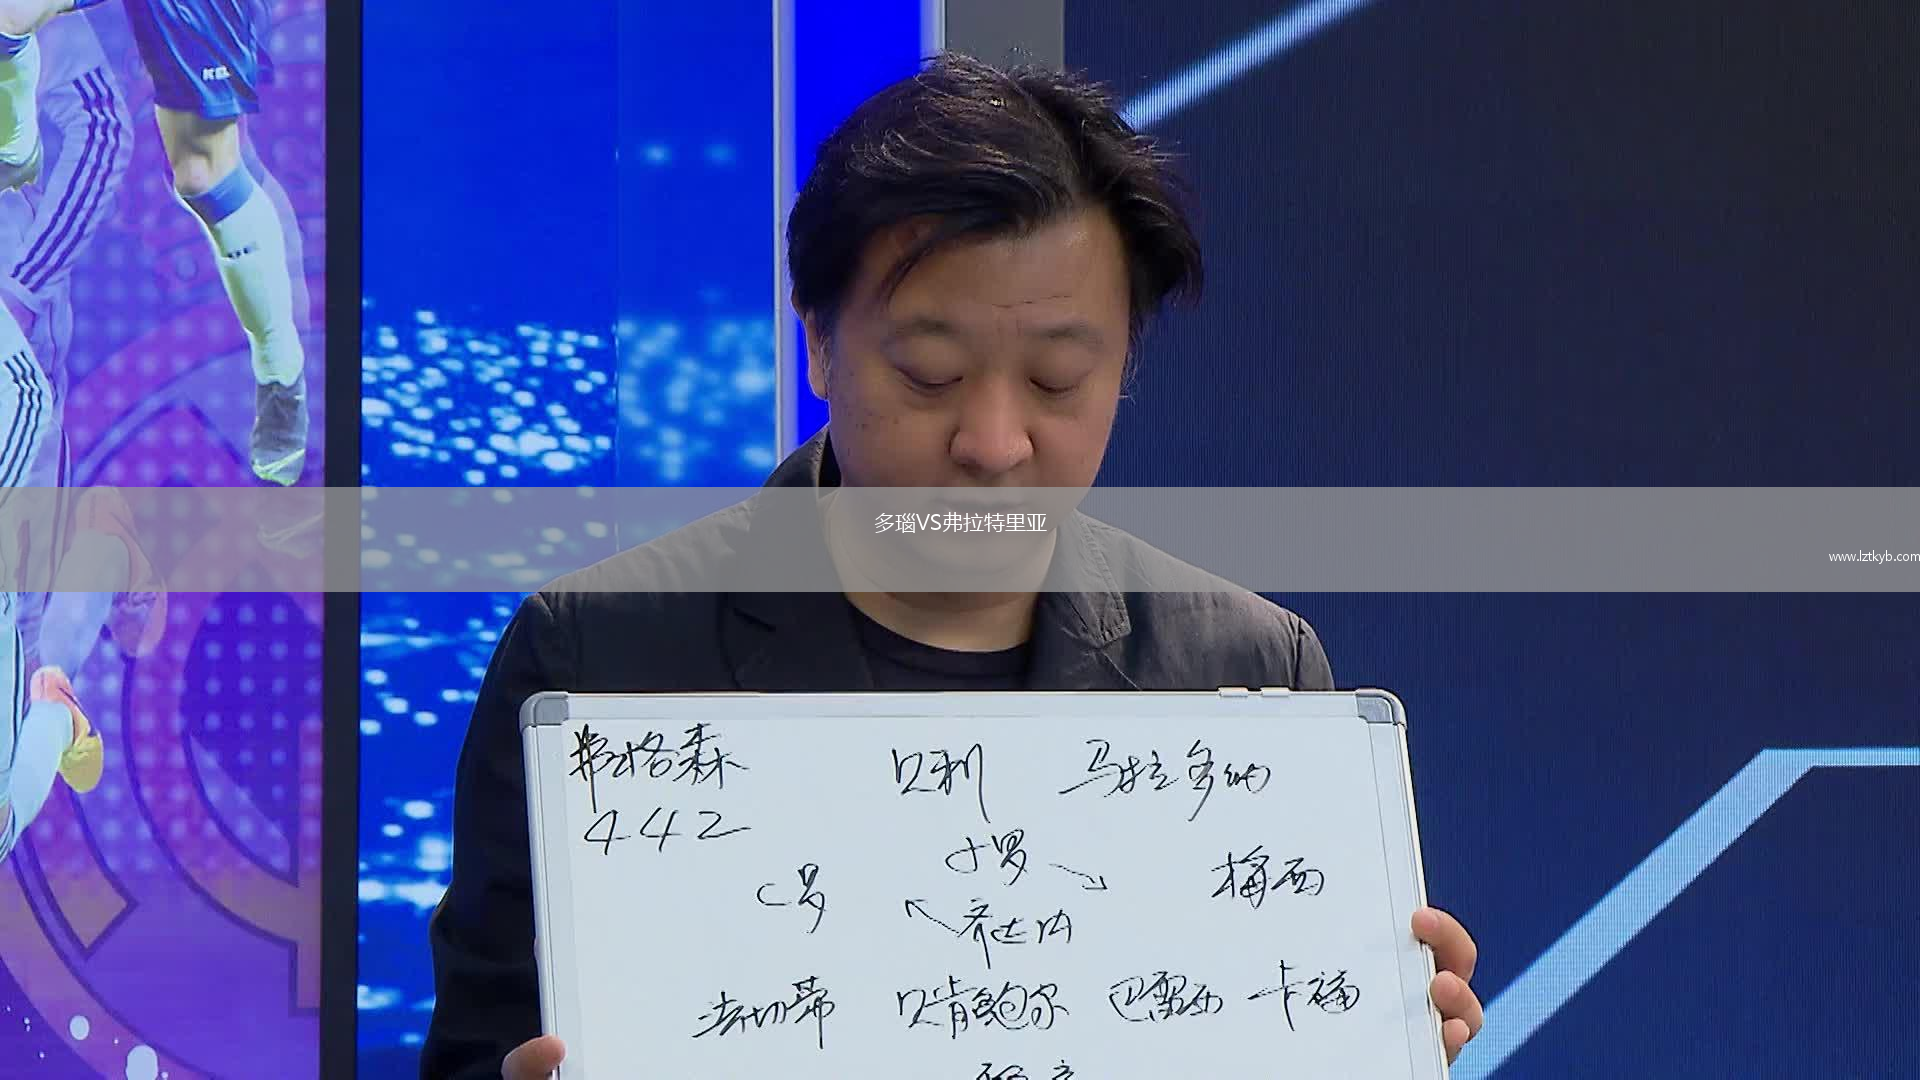 多瑙VS弗拉特里亚
www.lztkyb.com
弗格森 贝利 马拉多纳
442
小罗
C罗 梅西
齐达内
法切蒂 贝肯鲍尔 巴雷西 卡福